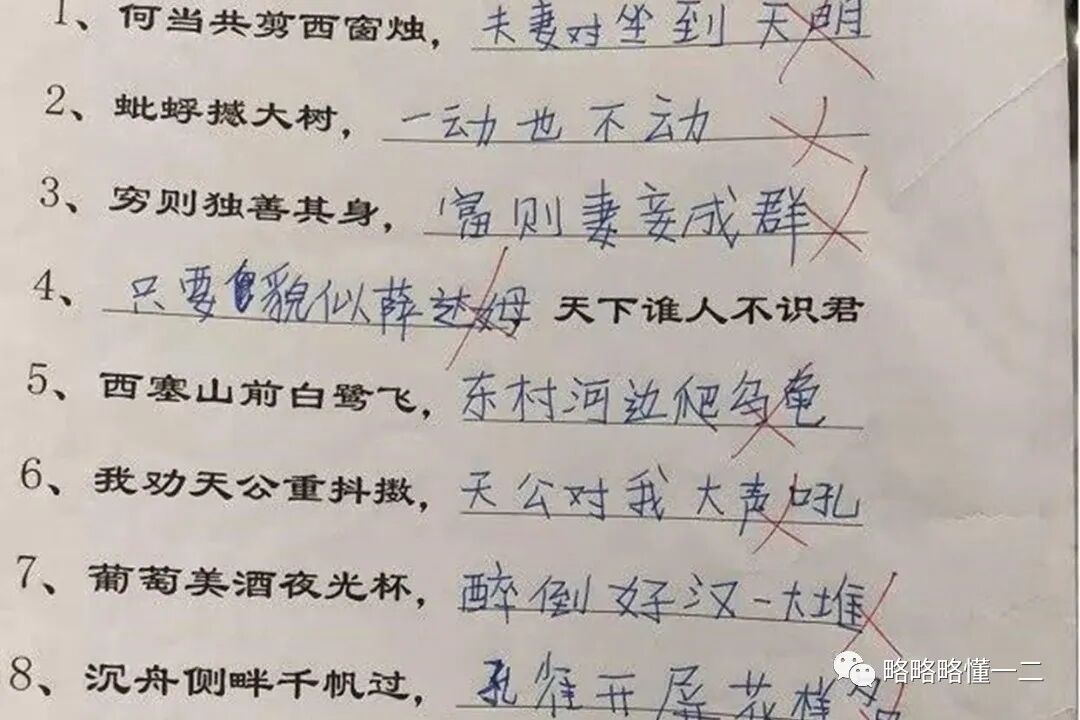 1、何当共剪西窗烛，夫妻对坐到天明
2、蚍蜉撼大树，一动也不动
3、穷则独善其身，富则妻妾成群
4、只要貌似薛达姆 天下谁人不识君
5、西塞山前白鹭飞，东村河边爬乌龟
6、我劝天公重抖擞，天公对我大声吼
7、葡萄美酒夜光杯，醉倒好汉一大堆
8、沉舟侧畔千帆过，孔雀开屏花样
略略略懂一二